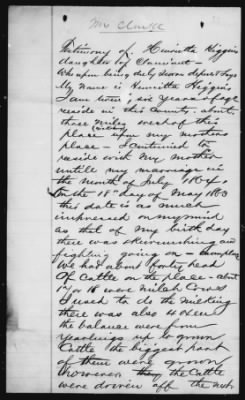 Mr Clurkk
Testimony of Henrietta Higgins
daughter of Claimant -
Who upon being duly sworn depose & says
My name is Henrietta Higgins
I am twenty six years of age
reside in this County - about
three miles west of this
place upon my mothers
place - I continued to
reside with my mother
untill my marriage in
the month of July 1864 -
On the 18th day of May 1863
this date is as much
impressed on my mind
as that of my birth day
there was skirmishing and
fighting going on -
We had about forty head
of Cattle on the place - about
17 or 18 were milch Cows
I used to do the milking
there was also 4 Oxen
the balance were from
yearlings up to grown
Cattle the biggest part
of them were grown
however the Cattle
were driven off the next